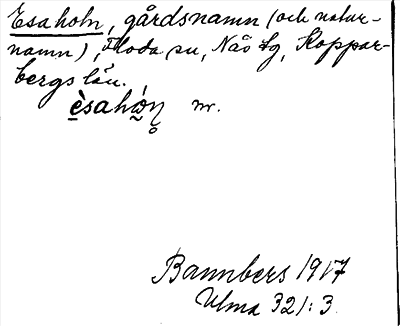 Esaholn, gårdsnamn (och natur-
namn), Floda sn, Nås tg, Koppar-
bergs län.
èsahòn̥ nr.
Bannbers 1917
Ulma 321:3.